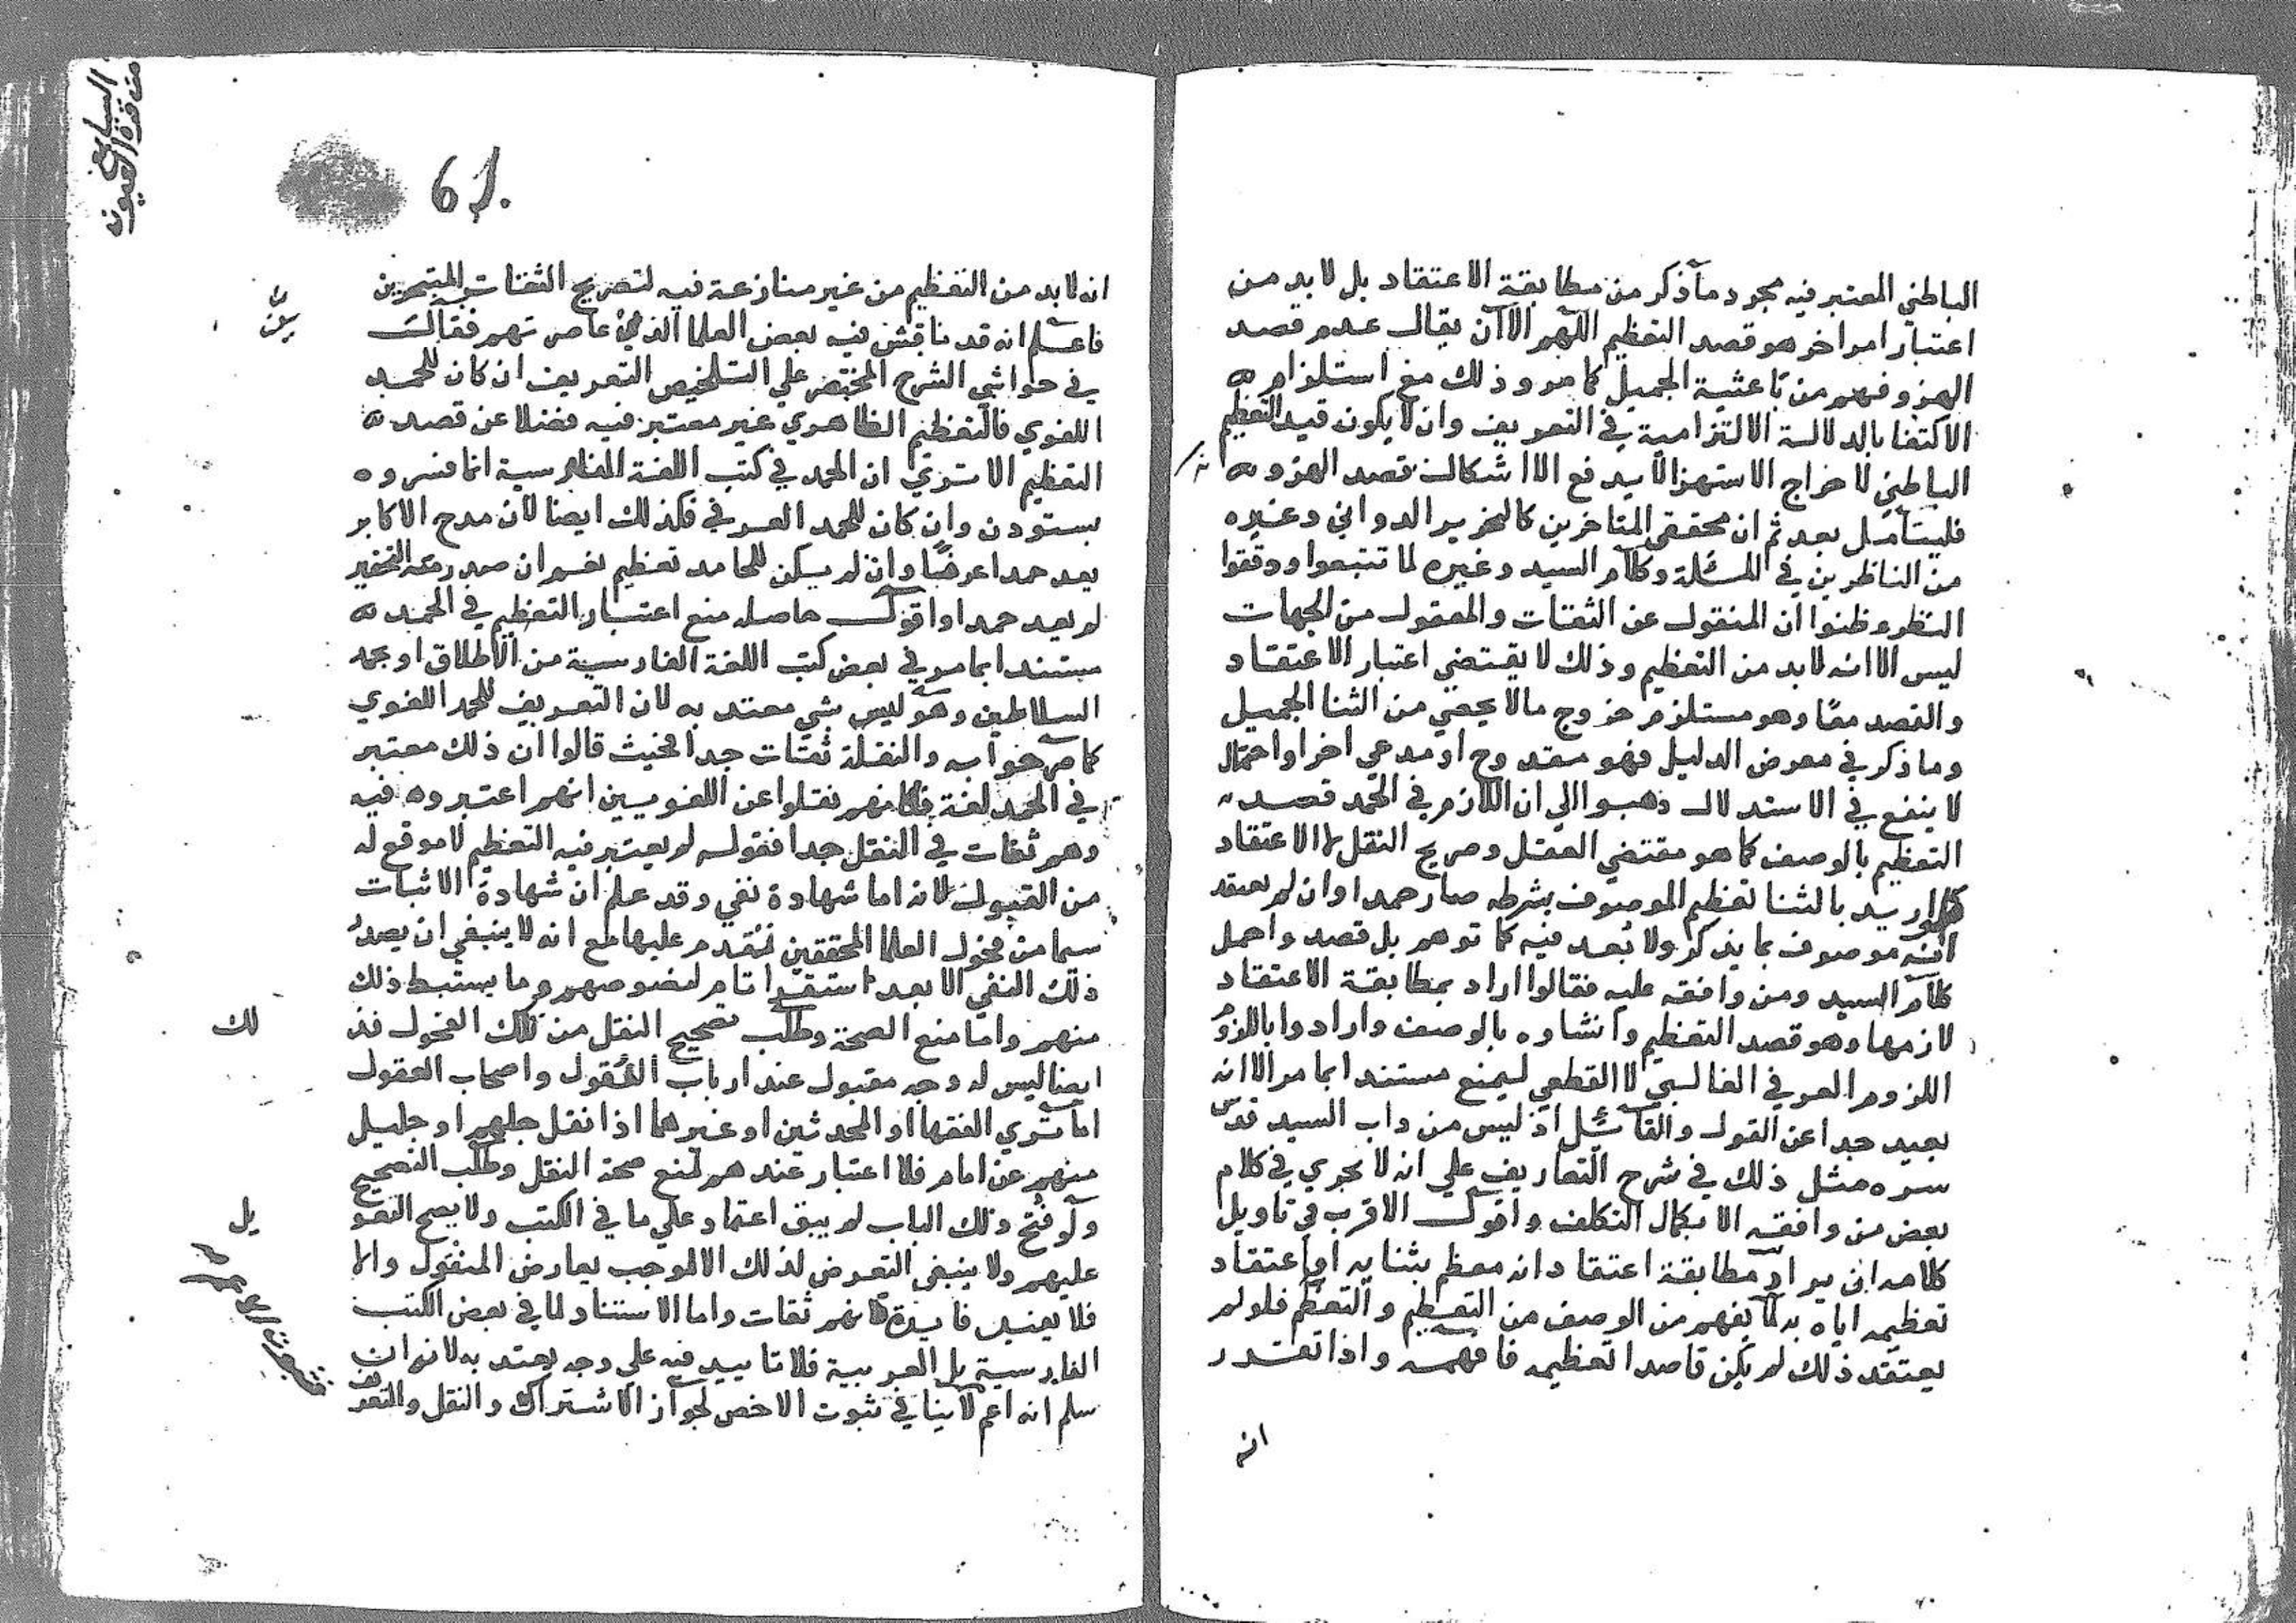 الباطني المعتبر فيه مجرد ما ذكر من مطابقة الاعتقاد بل لا بد من
اعتبار امر اخر هو قصد التعظيم اللهم الا ان يقال عدم قصد
الهزو فهم من باعثية الجميل كما مر وذلك مع استلزامه
الاكتفا بالدلالة الالتزامية في التعريف وان لا يكون قيد التعظيم
الباطني لاخراج الاستهزا لا يدفع الا اشكال قصد الهزو
فليتامل بعد ثم ان محققي المتاخرين كالنحرير الدواني وغيره
من الناظرين في المسئلة وكلام السيد وغيره لما تتبعوا ودققوا
النظر وظنوا ان المنقول عن الثقات والمعقول من الجهات
ليس الا انه لا بد من التعظيم وذلك لا يقتضي اعتبار الاعتقاد
والقصد معا وهو مستلزم خروج ما لا يحصي من الثنا الجميل
وما ذكر في معرض الدليل فهو مقدوح او مدعي اخر او احتمال
لا ينفع في الاستدلال ذهبوا الي ان اللازم في الحمد قصد
التعظيم بالوصف كما هو مقتضي العقل وصريح النقل لا الاعتقاد
فلو اريد بالثنا تعظيم الموصوف بشرطه صار حمدا وان لم يعتقد
انه موصوف بما يذكر ولا بعد فيه كما توهم بل قصد واحمل
كلام السيد ومن وافقه عليه فقالوا اراد بمطابقة الاعتقاد
لازمها وهو قصد التعظيم وانشاوه بالوصف وارادوا باللزوم
اللزوم العرفي الغالبي لا القطعي ليمنع مستندا بما مر الا انه
بعيد جدا عن القول والقائل اذ ليس من داب السيد قدس
سره مثل ذلك في شرح التعاريف علي انه لا يجري في كلام
بعض من وافقه الا بكمال التكلف واقول الاقرب في تاويل
كلامه ان يراد مطابقة اعتقاد انه معظم بثنايه او اعتقاد
تعظيمه اياه به لما يفهم من الوصف من التعظيم والتعظم فلو لم
يعتقد ذلك لم يكن قاصدا تعظيمه فافهمه واذا تقرر
انه
السابع
من قرة العيون
61.
ان لا بد من التعظيم من غير منازعة فيه لتصريح الثقات المتبحرين
فاعلم انه قد ناقش فيه بعض العلما الذي عاصرتهم فقال
في حواشي الشرح المختصر علي التلخيص التعريف ان كان للحمد
اللغوي فالتعظيم الظاهري غير معتبر فيه فضلا عن قصد
التعظيم الا تري ان الحمد في كتب اللغة الفارسية انما فسروه
بستودن وان كان للحمد العرفي فكذلك ايضا لان مدح الاكابر
يعد حمدا عرفيا وان لم يكن للحامد تعظيم نعم ان صدر معه التحقير
لم يعد حمدا واقول حاصله منع اعتبار التعظيم في الحمد
مستندا بما مر في بعض كتب اللغة الفارسية من الاطلاق او بحمد
السلاطين وهو ليس بشي معتد به لان التعريف للحمد اللغوي
كما صرحوا به والنقلة ثقات جدا بحيث قالوا ان ذلك معتبر
في الحمد لغة فكانهم نقلوا عن اللغويين انهم اعتبروه فيه
وهم ثقات في النقل جدا فقوله لم يعتبر فيه التعظيم لا موقع له
من القبول لانه اما شهادة نفي وقد علم ان شهادة الاثبات
سيما من فحول العلما المحققين تقدم عليها مع انه لا ينبغي ان يصدر
ذلك النفي الا بعد استقرا تام لنصوصهم وما يستنبط ذلك
منهم واما منع الصحة وطلب تصحيح النقل من تلك الفحول فذلك
ايضا ليس له وجه مقبول عند ارباب النقول واصحاب العقول
اما تري الفقها او المحدثين او غيرهما اذا نقل جلهم او جليل
منهم عن امام فلا اعتبار عندهم لمنع صحة النقل وطلب التصحيح
ولو فتح ذلك الباب لم يبق اعتماد علي ما في الكتب ولا يصح التعويل
عليهم ولا ينبغي التعرض لذلك الا لموجب يعارض المنقول والا
فلا يفيد فايدة لانهم ثقات واما الاستناد لما في بعض الكتب
الفارسية بل العربية فلا تاييد فيه علي وجه يعتد به لانه ان
سلم انه اعم لا ينافي ثبوت الاخص لجواز الاشتراك والنقل والتعريف